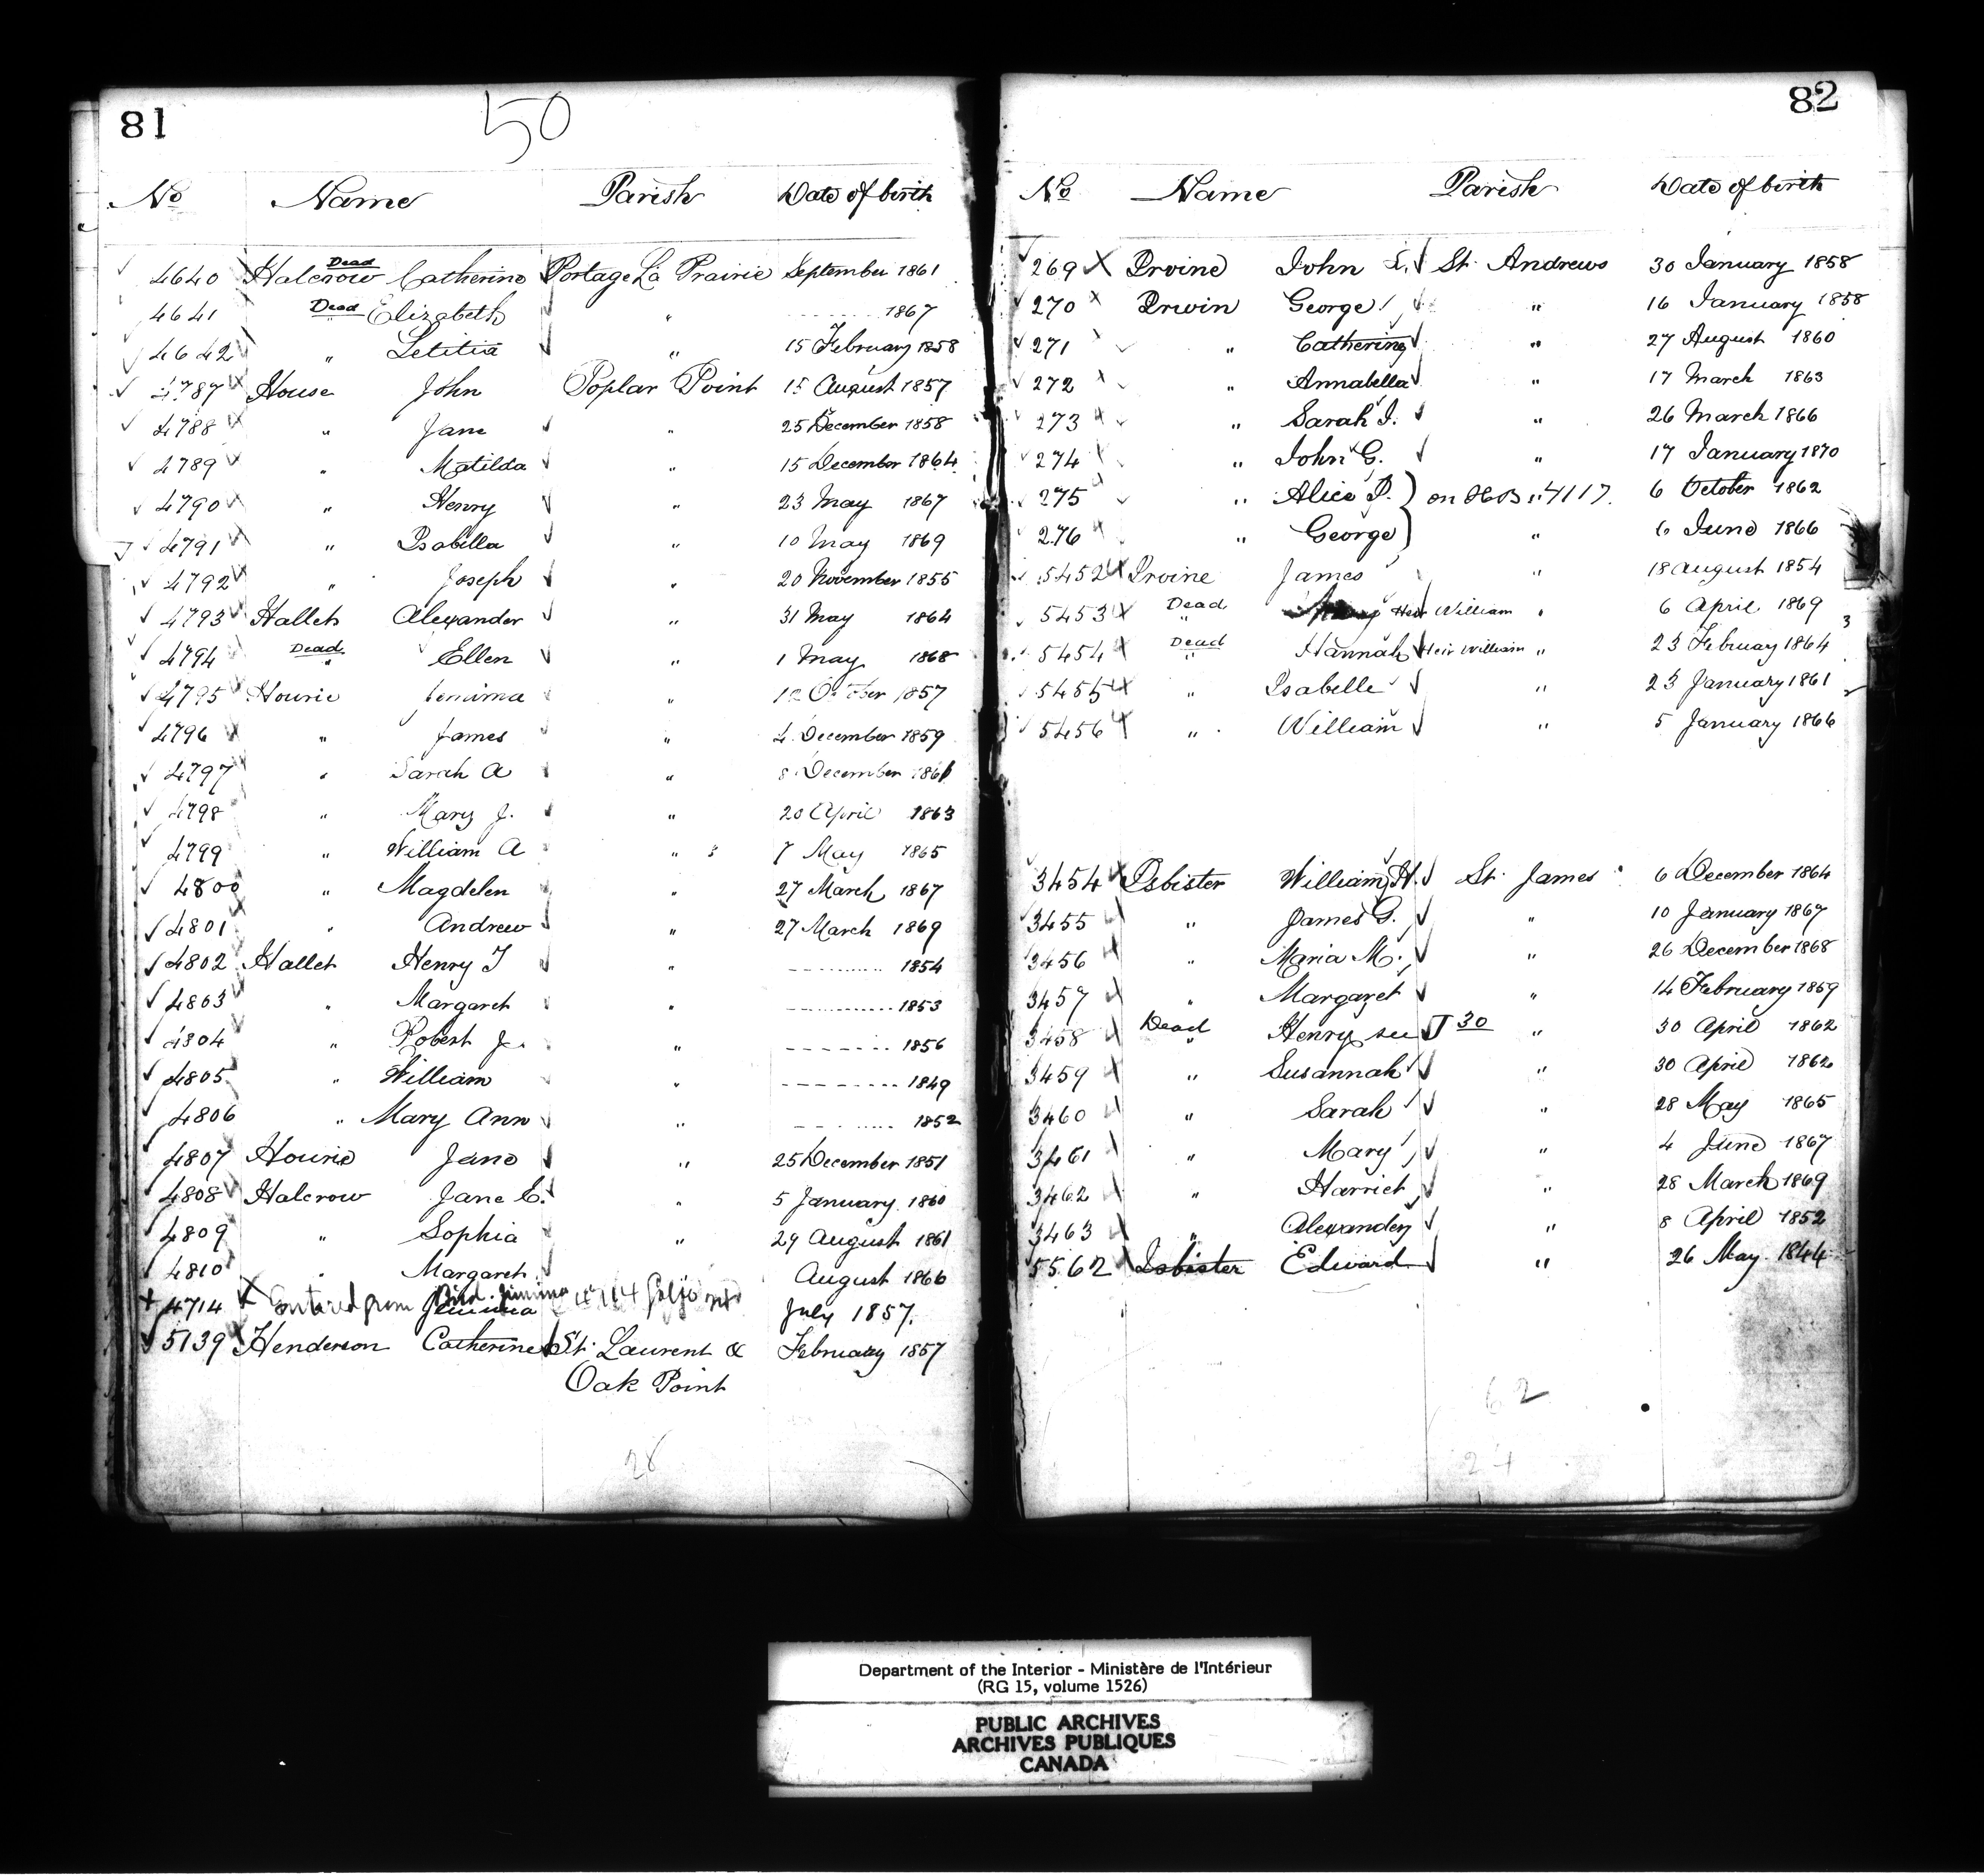 81
50
No Name Parish Date of birth
4640 Halcrow Dead Catherine Portage La Prairie September 1861
4641 Dead Elizabeth " 1867
4642 " Letitia " 15 February 1858
4787 House John Poplar Point 15 August 1857
4788 " Jane " 25 December 1858
4789 " Matilda " 15 December 1864
4790 " Henry " 23 May 1867
4791 " Isabella " 10 May 1869
4792 " Joseph " 20 November 1855
4793 Hallet Alexander " 31 May 1864
4794 Dead " Ellen " 1 May 1868
4795 Hourie Jemima " October 1857
4796 " James " 4 December 1859
4797 " Sarah A " 8 December 1861
4798 " Mary J. " 20 April 1863
4799 " William A " 7 May 1865
4800 " Magdelen " 27 March 1867
4801 " Andrew " 27 March 1869
4802 Hallet Henry T " 1854
4803 " Margaret " 1853
4804 " Robert " 1856
4805 " William " 1849
4806 " Mary Ann " 1852
4807 Hourie Jane " 25 December 1851
4808 Halcrow Jane E. " 5 January 1860
4809 " Sophia " 29 August 1861
4810 " Margaret August 1866
4714 Entered from Bird Jemima Jemima July 1857.
5139 Henderson Catherine St. Laurent & February 1857
Oak Point
28
82
No Name Parish Date of birth
269 Irvine John St. Andrews 30 January 1858
270 Irwin George " 16 January 1858
271 " Catherine " 27 August 1860
272 " Annabella " 17 March 1863
273 " Sarah J. " 26 March 1866
274 " John G. " 17 January 1870
275 " Alice on 4117. 6 October 1862
276 " George " 6 June 1866
5452 Irvine James " 18 August 1854
5453 Dead " Heir William " 6 April 1869
5454 Dead " Hannah Heir William " 23 February 1864
5455 " Isabelle " 23 January 1861
5456 " William " 5 January 1866
3454 Isbister William H. St. James 6 December 1864
3455 " James G. " 10 January 1867
3456 " Maria M. " 26 December 1868
3457 " Margaret " 14 February 1859
3458 Dead " Henry see J 30 " 30 April 1862
3459 " Susannah " 30 April 1862
3460 " Sarah " 28 May 1865
3461 " Mary " 4 June 1867
3462 " Harriet " 28 March 1869
3463 " Alexander " 8 April 1852
5562 Isbister Edward " 26 May 1844
62
24
Department of the Interior - Ministère de l'Intérieur
(RG 15, volume 1526)
PUBLIC ARCHIVES
ARCHIVES PUBLIQUES
CANADA